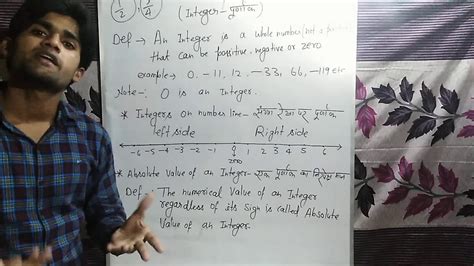 1/2, 3/4
(Integer - पूर्णांक)
Def → An Integer is a whole number (not a
that can be possitive, negative or zero
example → 0, -11, 12, -33, 66, -119 etc
Note -. 0 is an Integer.
* Integers on number line - संख्या रेखा पर पूर्णांक
left side Right side
-6 -5 -4 -3 -2 -1 0 1 2 3 4 5 6
zero
* Absolute Value of an Integer - एक पूर्णांक का निरपेक्ष मान
Def : The numerical Value of an Integer
regardless of its Sign is called Absolute
Value of an Integer.